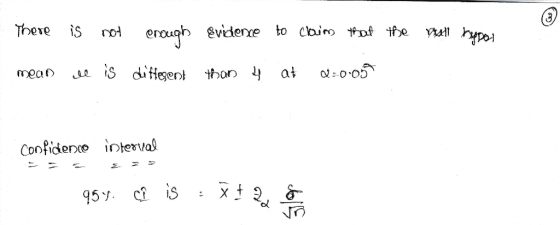 ③
There is not enough evidence to claim that the null hypo1
mean μ is different than 4 at α=0.05
Confidence interval
95%. CI is = x̄ ± Zα σ/√n